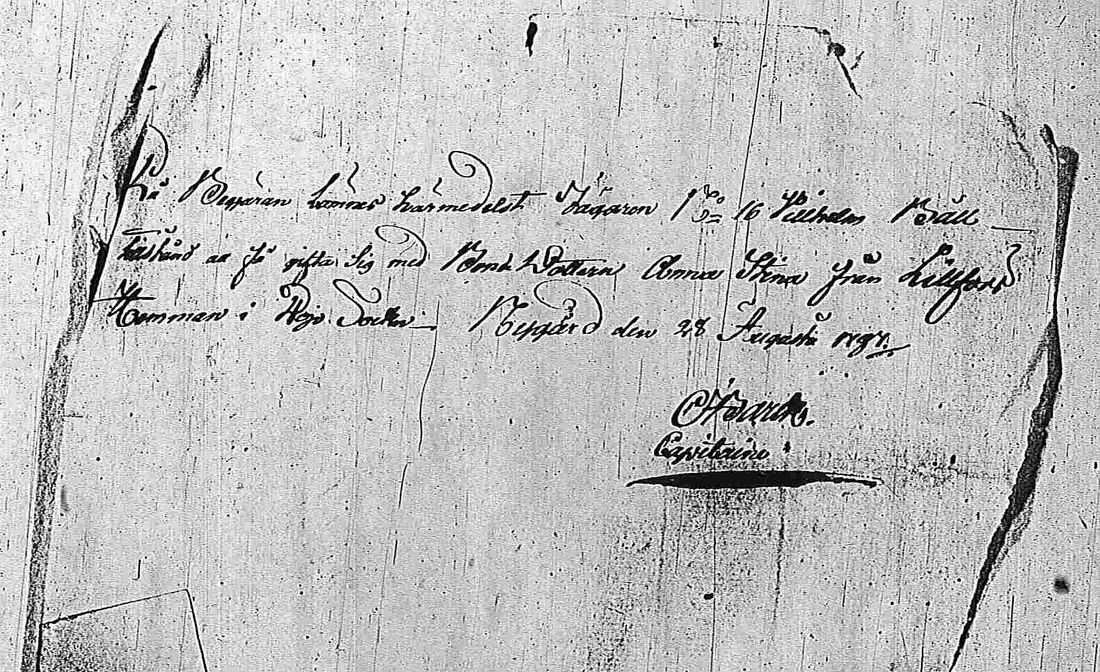 På Begäran lämnas härmedelst Jägaren No 16 Willhelm Båll
tilstånd att få gifta Sig med Bond Dottern Anna Stina från Lillfors
Hemman i Socken. Nygård den 28 Augusti
Capitaine